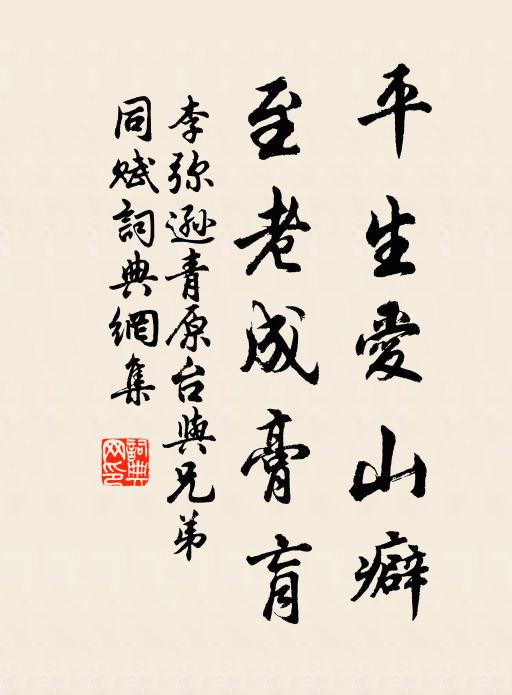 平生愛山癖
至老成膏肓
李弥遜青原台與兄弟
同赋詞典網集
詞典網印